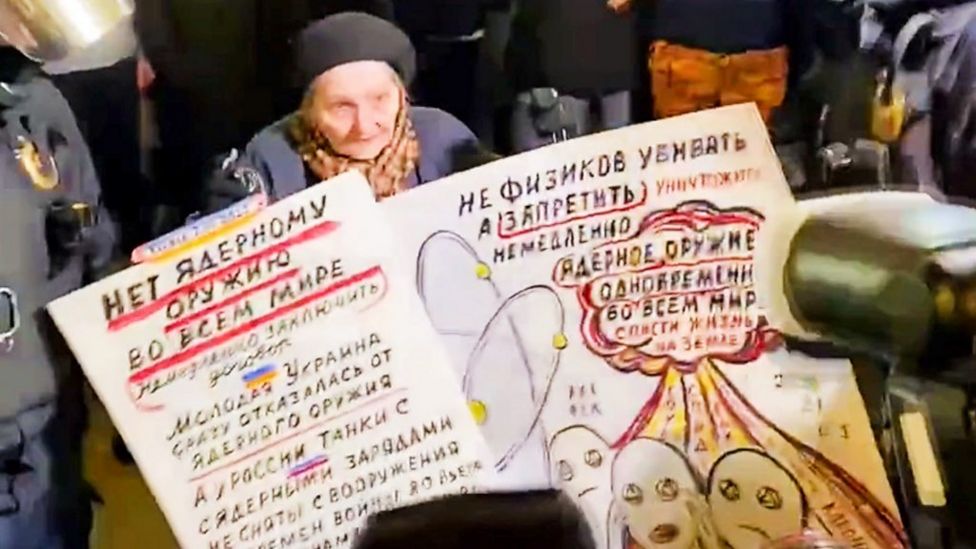 НЕТ ЯДЕРНОМУ
ОРУЖИЮ
ВО ВСЕМ МИРЕ
НЕМЕДЛЕННО ЗАКЛЮЧИТЬ
ДОГОВОР
МОЛОДАЯ УКРАИНА
СРАЗУ ОТКАЗАЛАСЬ ОТ
ЯДЕРНОГО ОРУЖИЯ
А У РОССИИ ТАНКИ С
ЯДЕРНЫМИ ЗАРЯДАМИ
НЕ СНЯТЫ С ВООРУЖЕНИЯ
ВРЕМЕН ВОЙНЫ
НЕ ФИЗИКОВ УБИВАТЬ
А ЗАПРЕТИТЬ УНИЧТОЖИТЬ
НЕМЕДЛЕННО
ЯДЕРНОЕ ОРУЖИЕ
ОДНОВРЕМЕНН
ВО ВСЕМ МИР
СПАСТИ ЖИЗНЬ
НА ЗЕМЛЕ